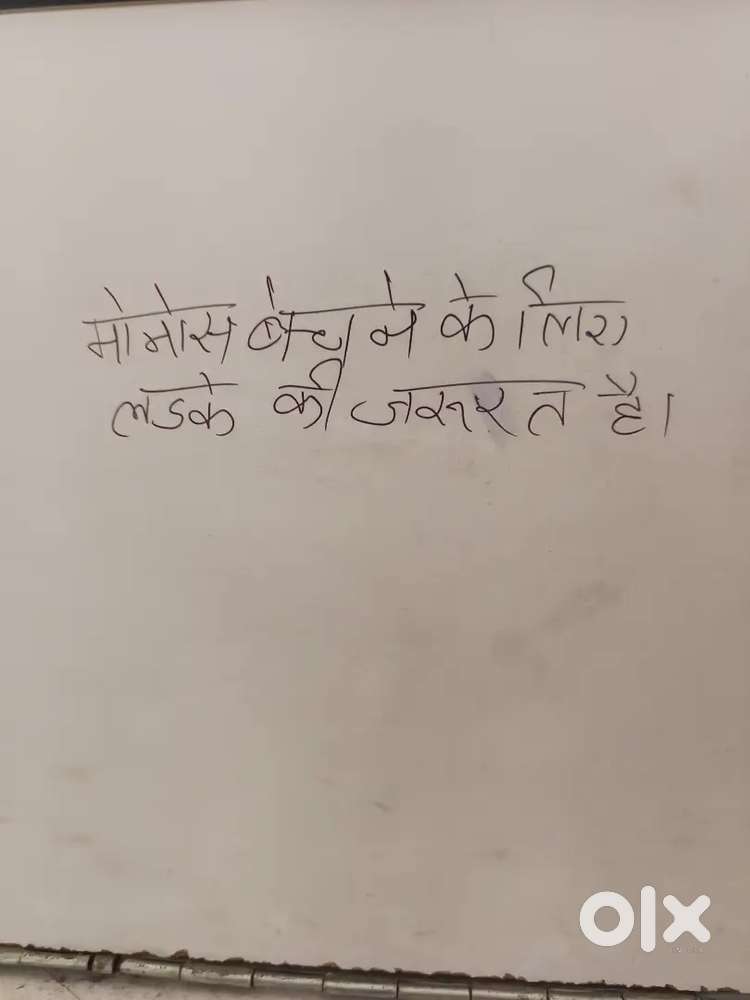 मोमोस बेचने के लिए
लडके की जरूरत है।
olx